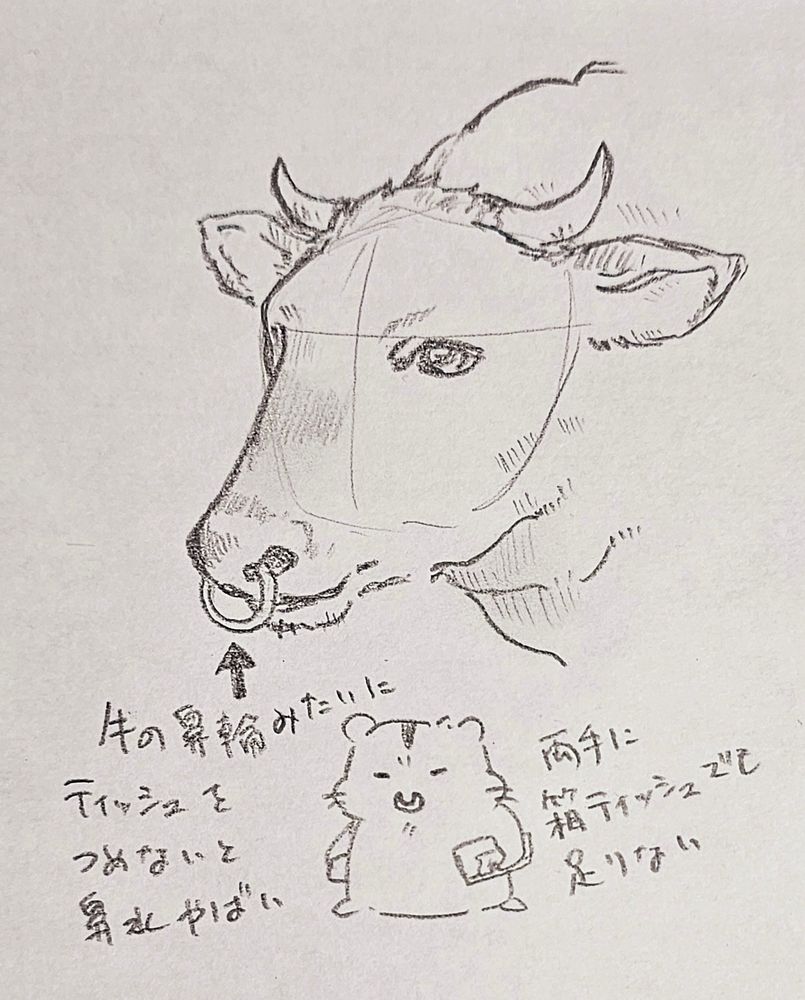 牛の鼻輪みたいに
ティッシュを
つめないと
鼻水やばい
両手に
箱ティッシュでも
足りない